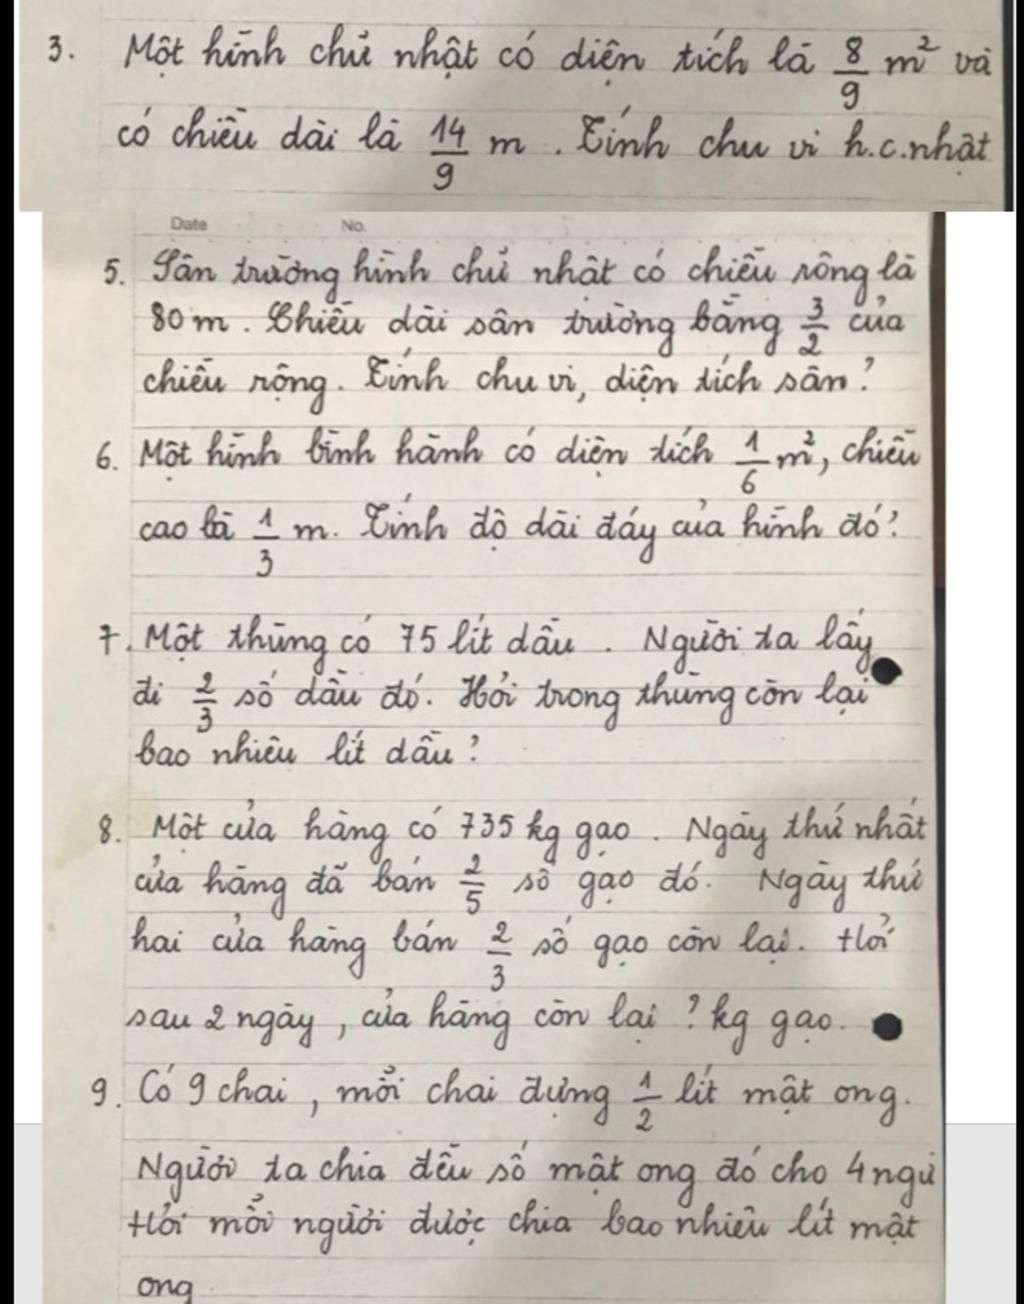 3. Một hình chữ nhật có diện tích là 8/9 m² và
có chiều dài là 14/9 m. Tính chu vi h.c.nhật
Date No.
5. Sân trường hình chữ nhật có chiều rộng là
80m. Chiều dài sân trường bằng 3/2 của
chiều rộng. Tính chu vi, diện tích sân?
6. Một hình bình hành có diện tích 1/6 m², chiều
cao là 1/3 m. Tính độ dài đáy của hình đó?
7. Một thùng có 75 lít dầu. Người ta lấy
đi 2/3 số dầu đó. Hỏi trong thùng còn lại
bao nhiêu lít dầu?
8. Một cửa hàng có 735 kg gạo. Ngày thứ nhất
cửa hàng đã bán 2/5 số gạo đó. Ngày thứ
hai cửa hàng bán 2/3 số gạo còn lại. Hỏi
sau 2 ngày, cửa hàng còn lại ? kg gạo.
9. Có 9 chai, mỗi chai đựng 1/2 lít mật ong.
Người ta chia đều số mật ong đó cho 4 ngư
Hỏi mỗi người được chia bao nhiêu lít mật
ong.